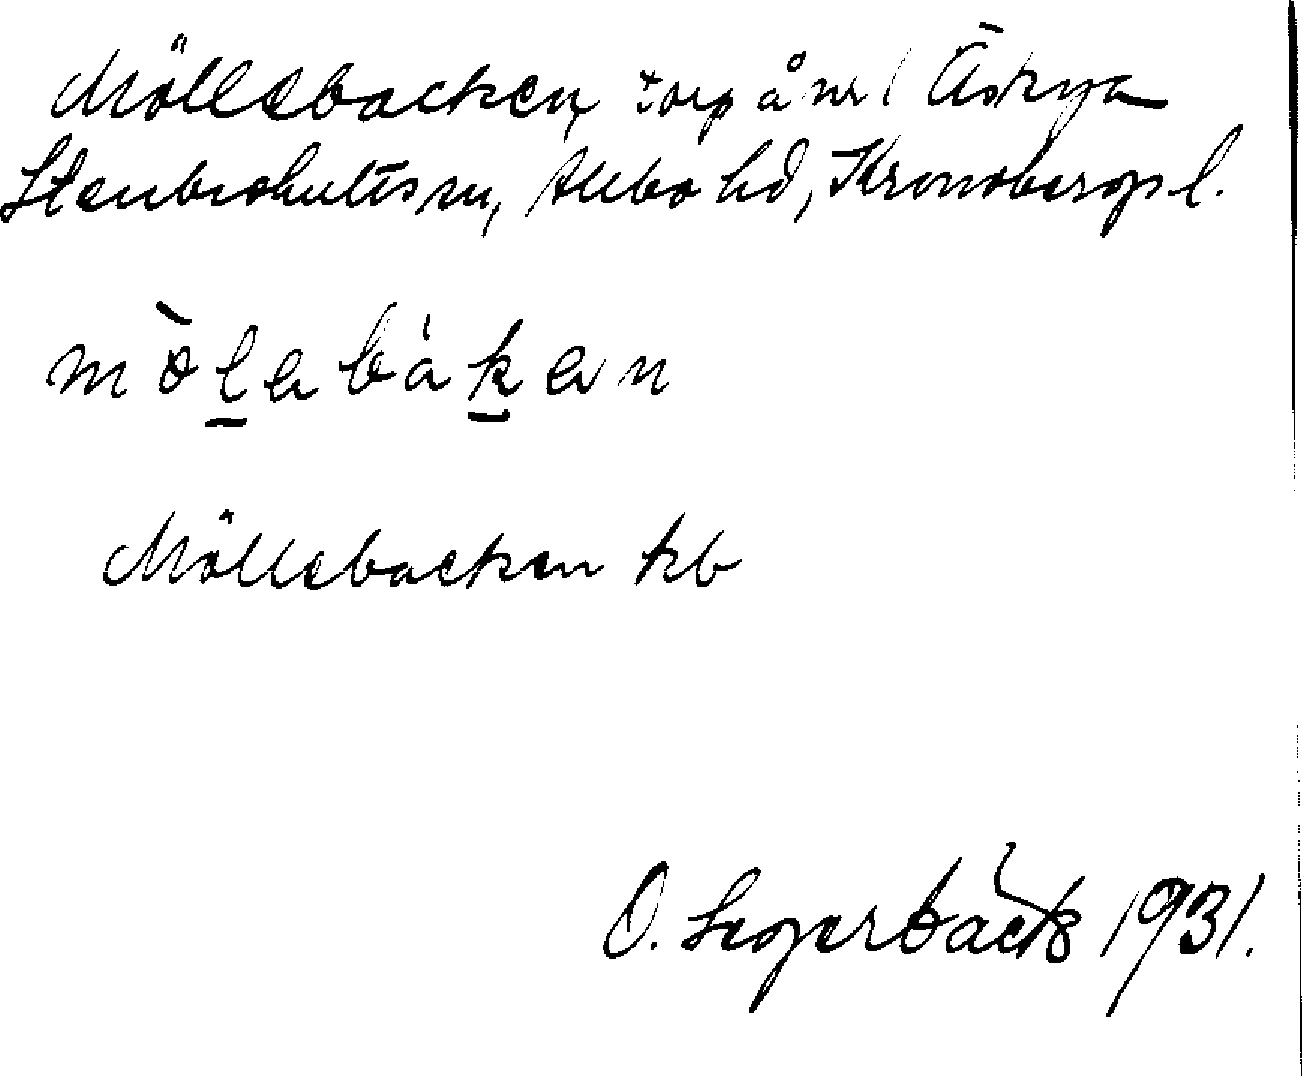 Möllebacken, torp å nr 1 Äskya
Stenbrohults sn, Allbo hd, Kronobergs l.
mò̈labàkan
Möllebacken kb
O. Segerbäck 1931.